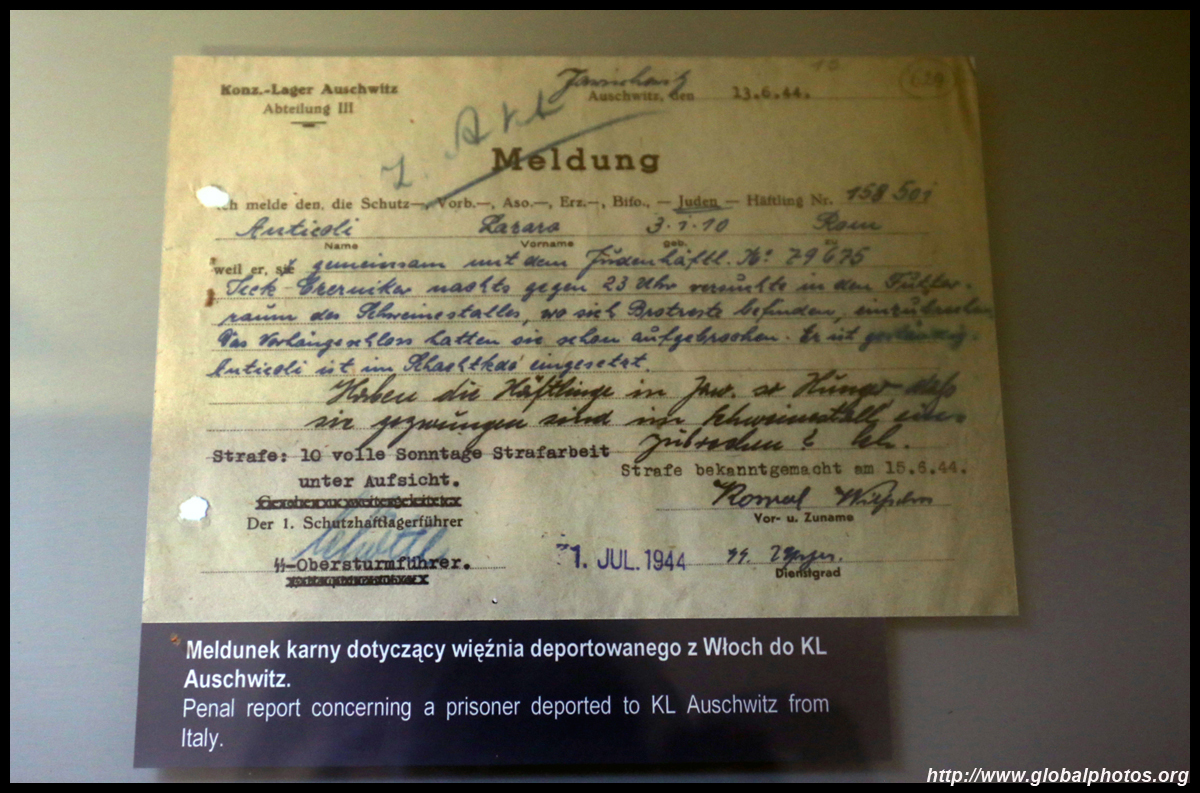 Konz.-Lager Auschwitz
Abteilung III
Jawischowitz
Auschwitz, den 13.6.44.
Z. Akt
Meldung
Ich melde den, die Schutz—, Vorb.—, Aso.—, Erz.—, Bifo., — Juden — Häftling Nr. 158 501
Anticoli Lazaro 3.1.10 Rom
Name Vorname geb.
weil er, sie gemeinsam mit dem Judenhäftl. No 79675
Icek Czerniker nachts gegen 23 Uhr versuchte in den Futter-
raum des Schweinestalles, wo sich Brotreste befinden, einzubrechen
Das Vorhängeschloss hatten sie schon aufgebrochen. Er ist geständig.
Anticoli ist im Schachtkdo eingesetzt.
Haben die Häftlinge in Jaw. so Hunger daß
sie gezwungen sind im Schweinestall ein-
zubrechen?
Strafe: 10 volle Sonntage Strafarbeit
unter Aufsicht.
Strafe bekanntgemacht am 15.6.44.
Wilhelm
Der 1. Schutzhaftlagerführer
Vor- u. Zuname
SS-Obersturmführer.
1. JUL. 1944
Dienstgrad
Meldunek karny dotyczący więźnia deportowanego z Włoch do KL
Auschwitz.
Penal report concerning a prisoner deported to KL Auschwitz from
Italy.
http://www.globalphotos.org